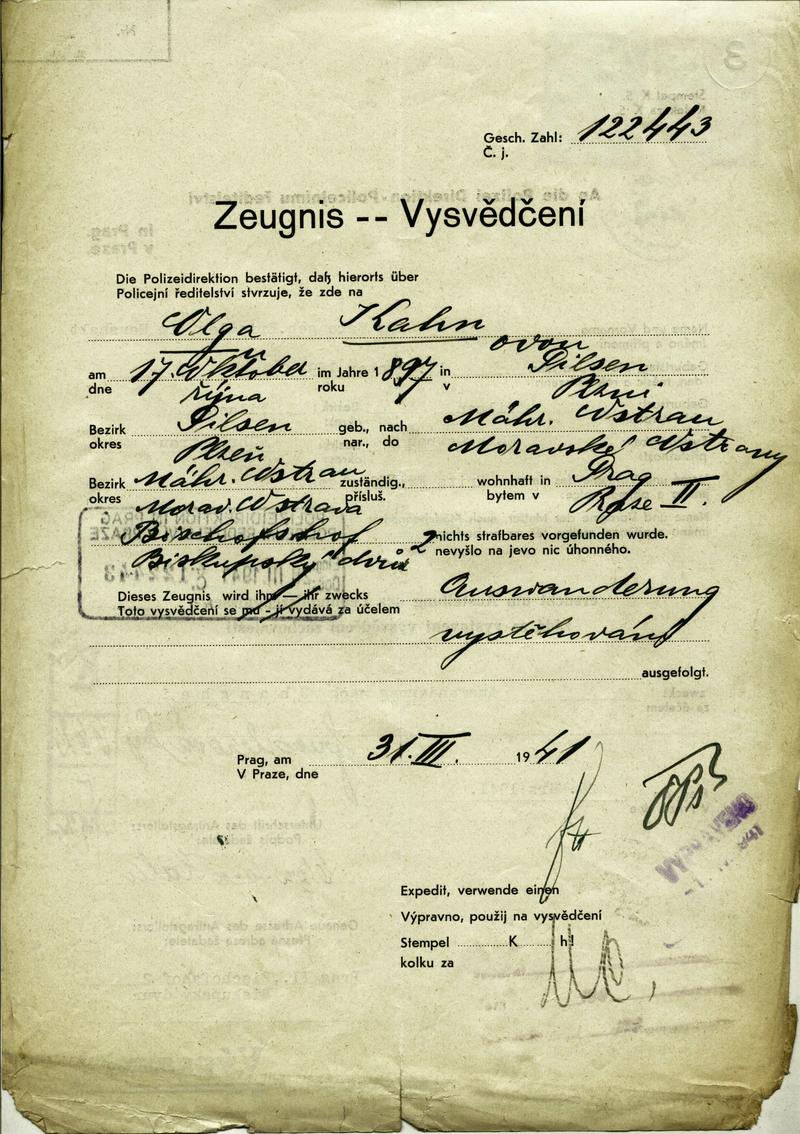 Gesch. Zahl: 122443
Č. j.
Zeugnis -- Vysvědčení
Die Polizeidirektion bestätigt, daß hierorts über
Policejní ředitelství stvrzuje, že zde na
Olga Kahn ovou
am 17. Oktober im Jahre 1897 in Pilsen
dne října roku v Plzni
Bezirk Pilsen geb., nach Mähr. Ostrau
okres Plzeň nar., do Moravské Ostravy
Bezirk Mähr. Ostrau zuständig., wohnhaft in Prag
okres Morav. Ostrava přísluš. bytem v Praze II.
Bischofshof 2 nichts strafbares vorgefunden wurde.
Biskupský dvůr nevyšlo na jevo nic úhonného.
Dieses Zeugnis wird ihm — ihr zwecks Auswanderung
Toto vysvědčení se mu - ji vydává za účelem
vystěhování
ausgefolgt.
Prag, am 31. III. 1941
V Praze, dne
Expedit, verwende einen
Výpravno, použij na vysvědčení
Stempel K h!
kolku za